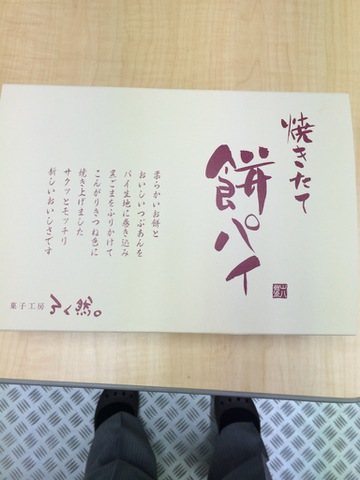 焼きたて
餅パイ
柔らかいお餅と
おいしいつぶあんを
パイ生地に巻き込み
黒ごまをふりかけて
こんがりきつね色に
焼き上げました
サクッとモッチリ
新しいおいしさです
菓子工房
ろく然。